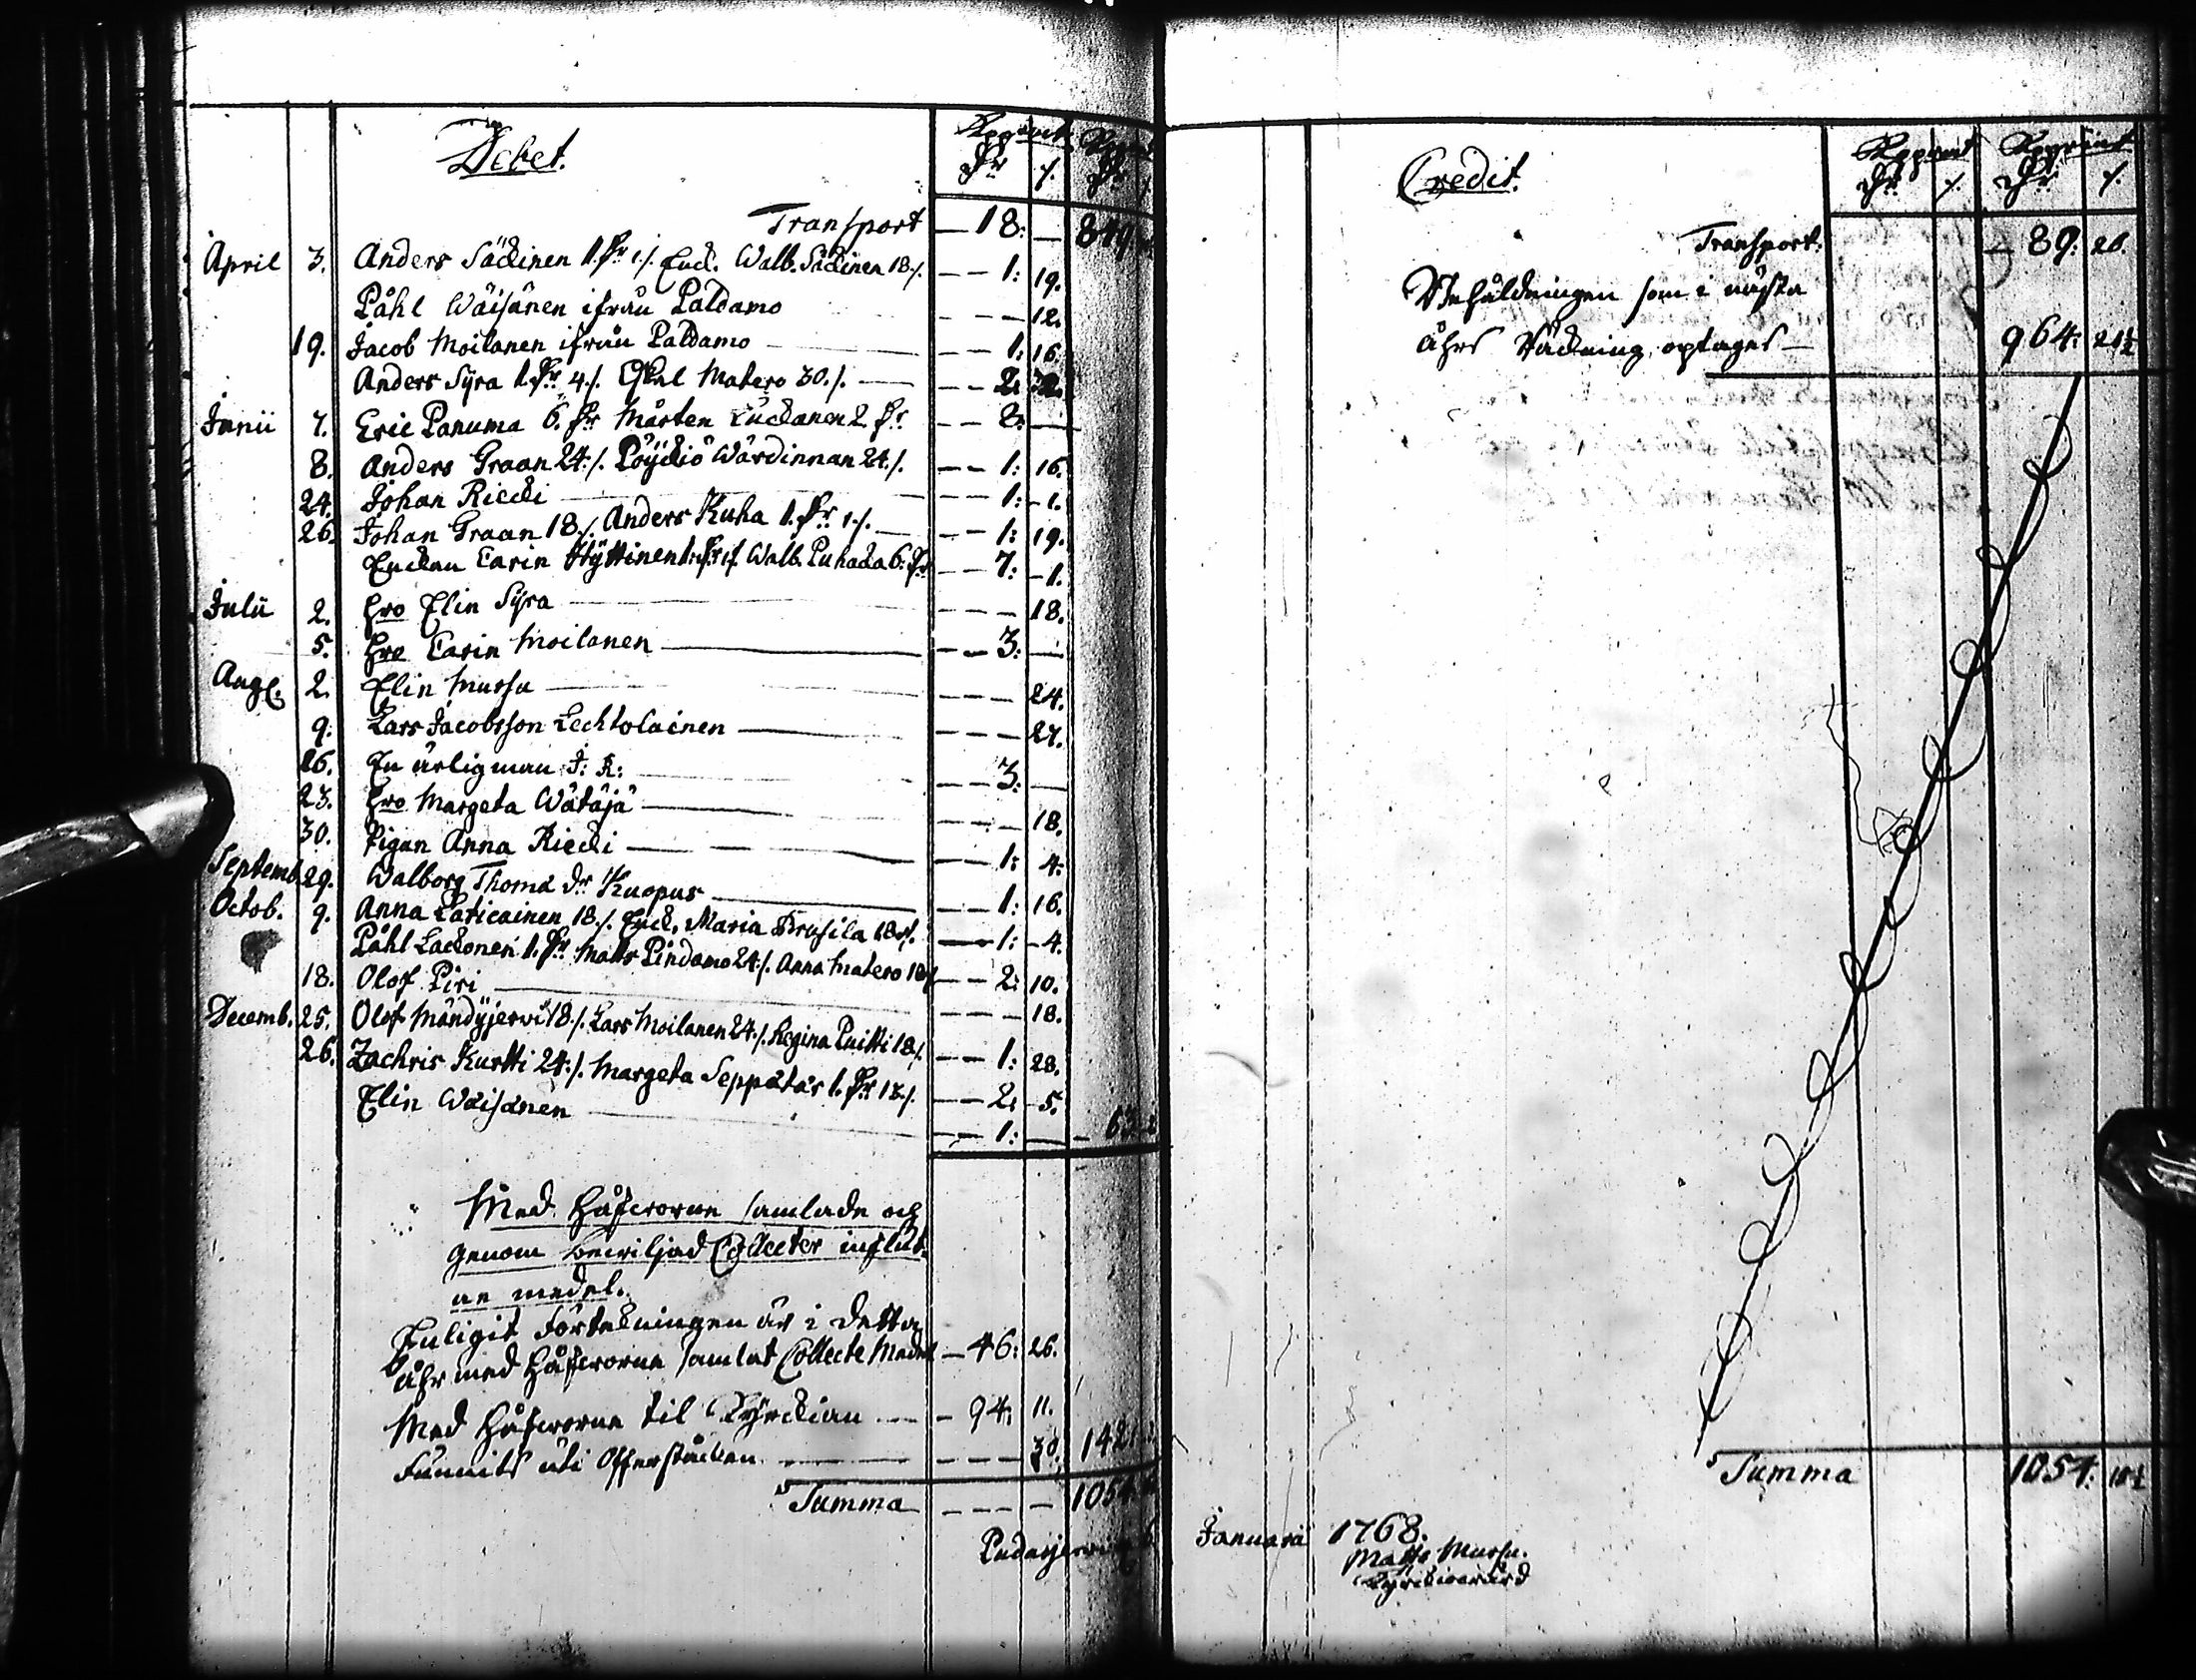 Debet.
Transport — 18: — 849
April 3. Anders Säckinen 1. Dr 1./. Enck. Walb. Säckinen 18./. — — 1: 19.
Påhl Wäisänen ifrån Paldamo — — — 12.
19. Jacob Moilanen ifrån Paldamo — — — 1: 16.
Anders Syra 1. Dr 4./. Eskel Matero 30./. — — — 2:
Junii 7. Eric Panuma 6. Dr Mårten Luckanen 2. Dr — — 8: —
8. Anders Graan 24./. Pöyckiö Wärdinnan 24./. — — 1: 16.
24. Johan Riecki — — — 1: - 1.
26. Johan Graan 18./. Anders Kuha 1. Dr 1./. — — — 1: 19.
Enckan Carin Hyttinen 1. Dr 1./. Walb. Puhacka 6. Dr — — 7: - 1.
Julii 2. Hro Elin Syra — — — — 18.
5. Hro Carin Moilanen — — — 3: —
Aug. 2. Elin Mursu — — — — 24.
9. Lars Jacobsson Lechtolainen — — — — 27.
16. En ärlig man J: R: — — — 3: —
23. Hro Margeta Wätäjä — — — — 18.
30. Pigan Anna Riecki — — — 1: 4.
Septemb. 29. Walborg Thomæ dr Kuopus — — — 1: 16.
Octob. 9. Anna Laticainen 18./. Enck. Maria Krusila 18./. — 1: - 4.
Påhl Lackonen 1. Dr Matts Pindamo 24./. Anna Matero 18./. — — 2: 10.
18. Olof Piri — — — — 18.
Decemb. 25. Olof Mändyjerwi 18./. Lars Moilanen 24./. Regina Puitti 18./. — — 1: 28.
26. Zachris Kurtti 24./. Margeta Seppätär 1. Dr 13./. — — 2: - 5.
Elin Wäisänen — — — 1: — — 63
Med Håfworne samlade och
genom bewiljad Collecter influt-
ne medel.
Enligit Förtekningen är i detta
åhr med Håfworne samlat Collecte Medel — 46: 26.
Med Håfworne til Kyrckian — — 94: 11.
Funnits uti Offerstocken — — — — 30. 142
Summa — — — — 1054
Pudasjerwi
Credit.
Transport. — 89: 26.
Behåldningen som i nästa
åhrs Räckning optages — 964: 21½
Summa 1054:
Januarii 1768.
Matts Mursu.
Kyrckiowärd